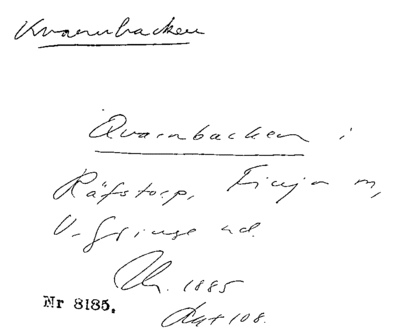 Kvarnbacken
Qvarnbacken i
Räfstorp, Finja sn,
V. Göinge hd.
1885
Nr 8185. Akt 108.